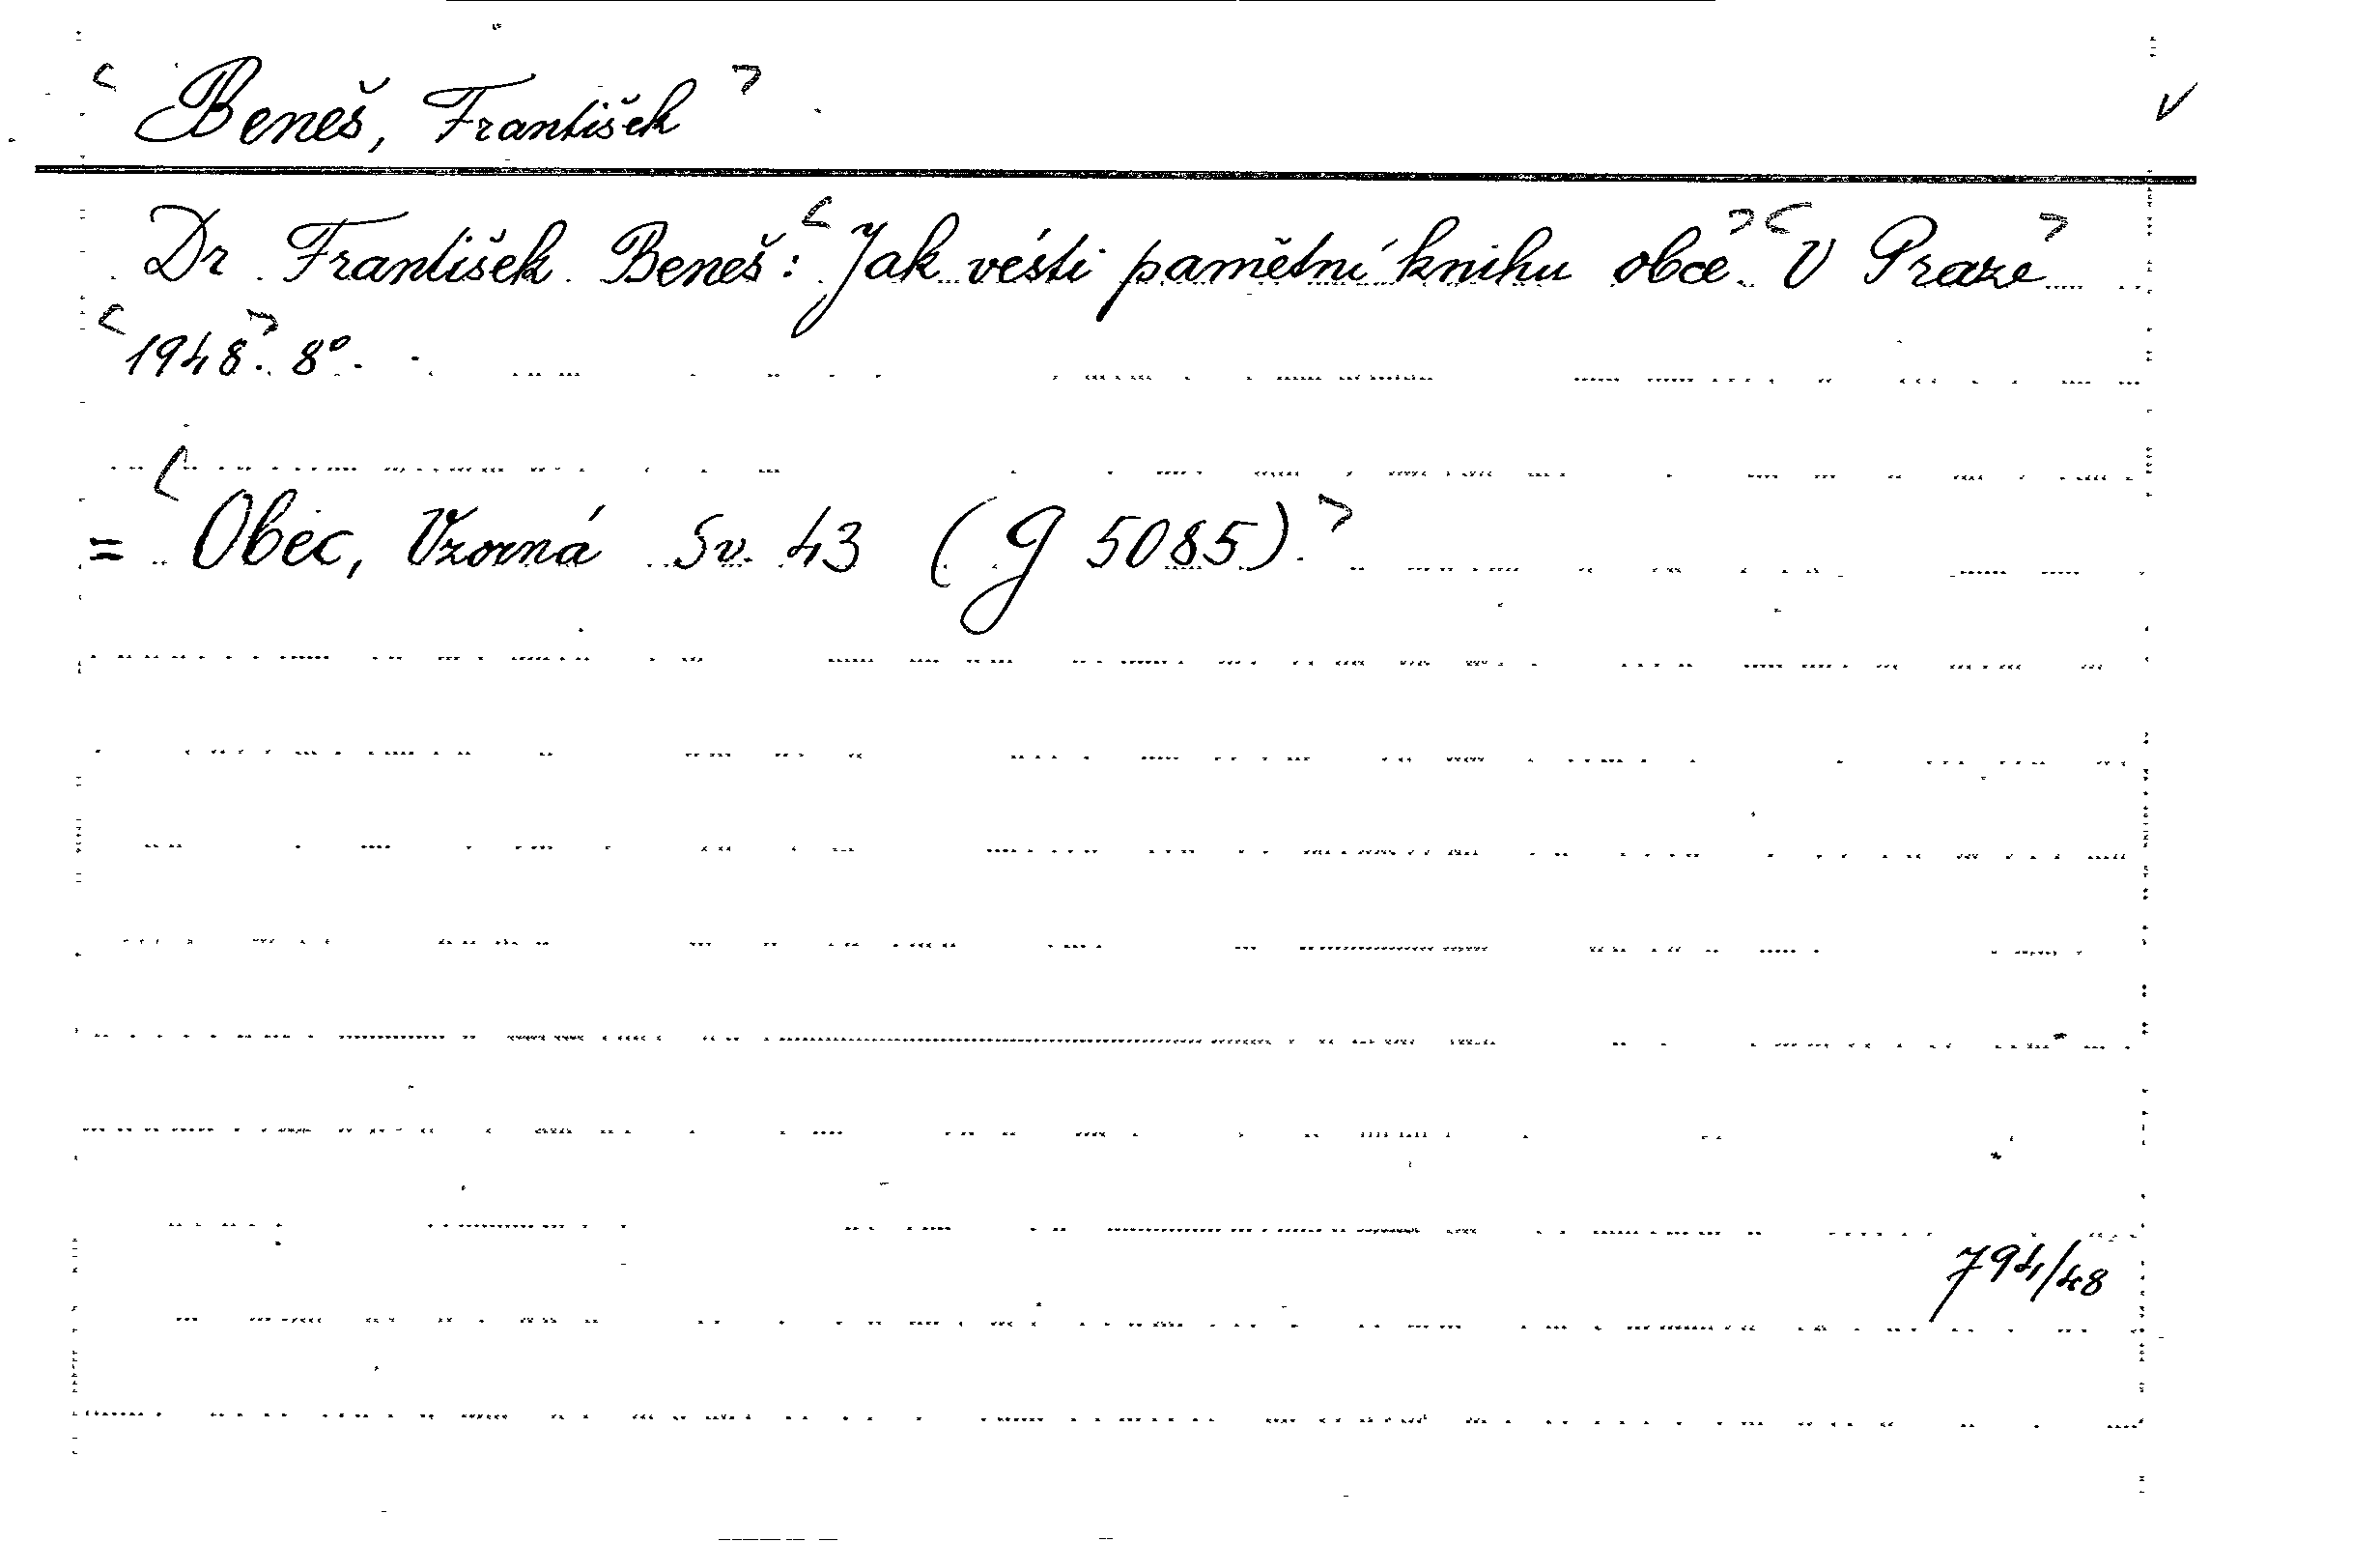 < Beneš, František > V
Dr František Beneš: < Jak vésti pamětní knihu obce. > < V Praze >
< 1948. > 8°.
= < Obec, Vzorná Sv. 43 (G 5085). >
794/48